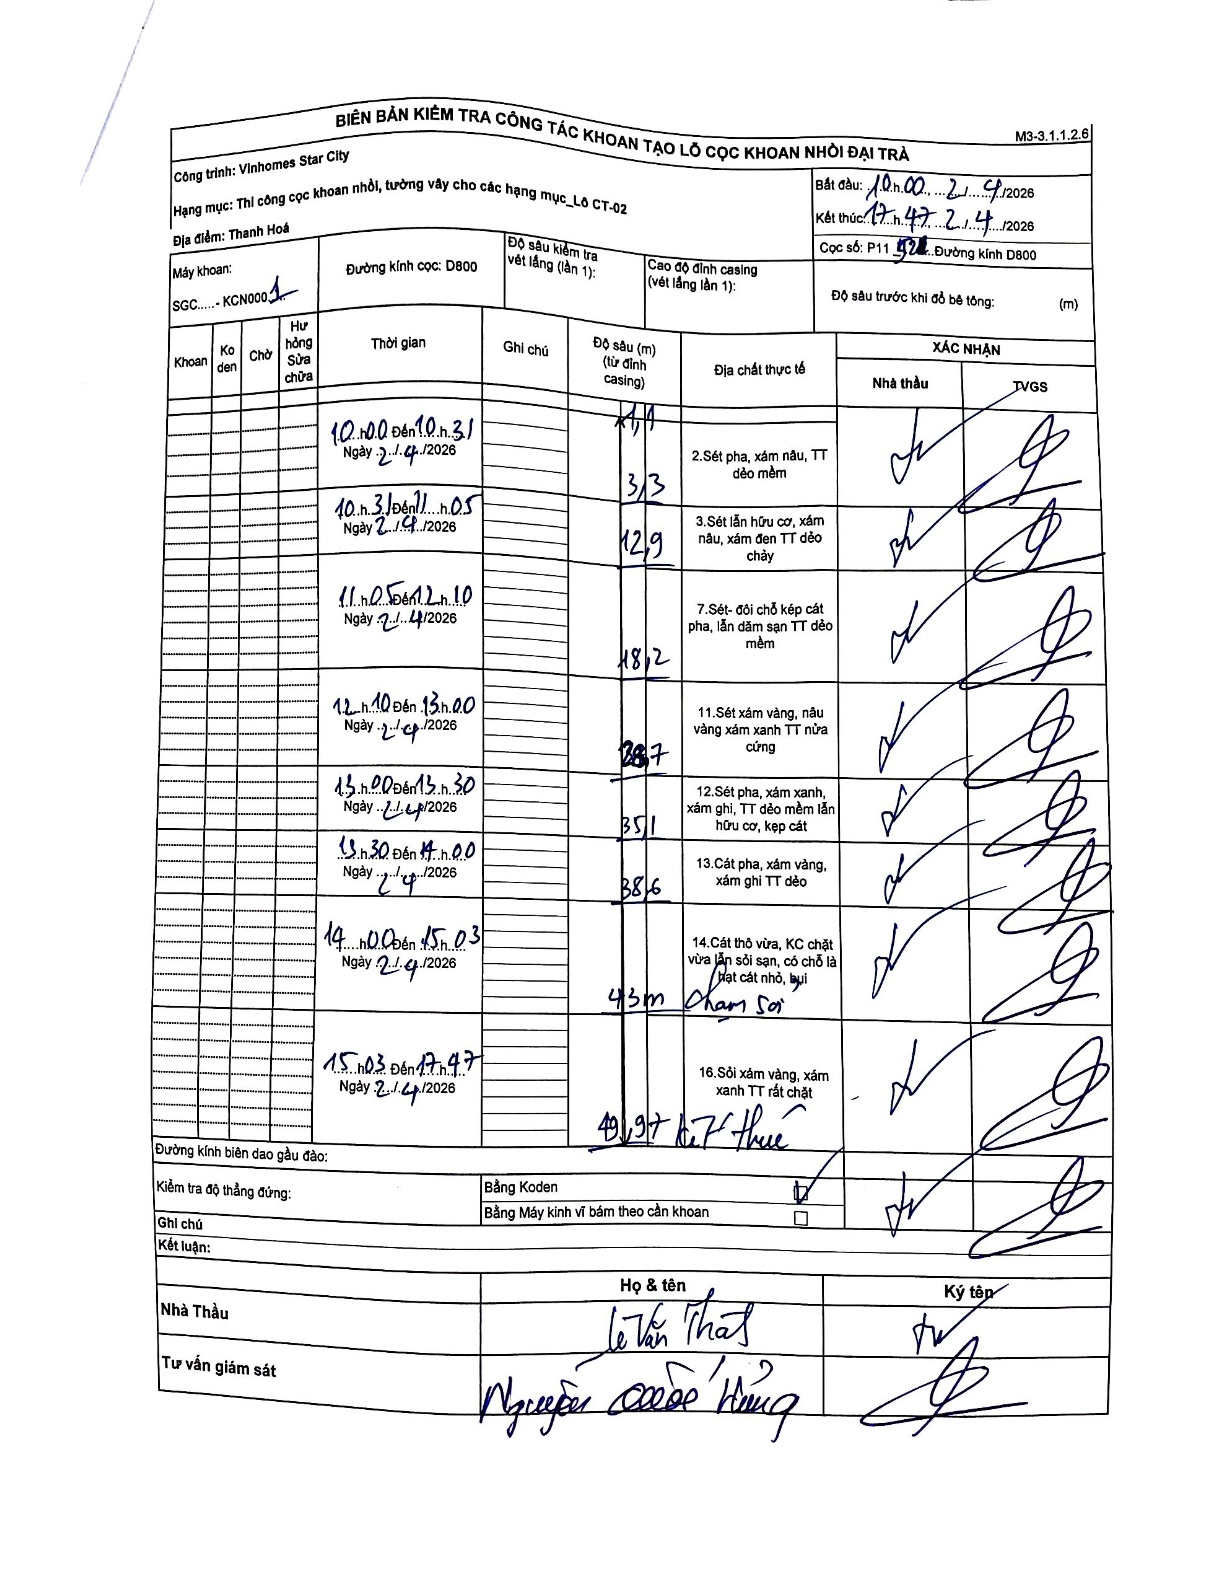 BIÊN BẢN KIỂM TRA CÔNG TÁC KHOAN TẠO LỖ CỌC KHOAN NHỒI ĐẠI TRÀ
M3-3.1.1.2.6
Công trình: Vinhomes Star City
Hạng mục: Thi công cọc khoan nhồi, tường vây cho các hạng mục_Lô CT-02
Địa điểm: Thanh Hoá
Bắt đầu: 10.h.00, ...2../....4.../2026
Kết thúc: 17.h.47, 2./....4.../2026
Cọc số: P11 ...Đường kính D800
Máy khoan:
SGC.....- KCN0001
Đường kính cọc: D800
Độ sâu kiểm tra vét lắng (lần 1):
Cao độ đỉnh casing (vét lắng lần 1):
Độ sâu trước khi đổ bê tông: (m)
Khoan
Ko den
Chờ
Hư hỏng Sửa chữa
Thời gian
Ghi chú
Độ sâu (m) (từ đỉnh casing)
Địa chất thực tế
XÁC NHẬN
Nhà thầu
TVGS
1,1
10..h00 Đến 10.h.31
Ngày .2../.4./2026
3,3
2.Sét pha, xám nâu, TT dẻo mềm
10..h.31Đến11...h.05
Ngày 2../.4./2026
12,9
3.Sét lẫn hữu cơ, xám nâu, xám đen TT dẻo chảy
11.h.05Đến12.h.10
Ngày .2../..4/2026
18,2
7.Sét- đôi chỗ kép cát pha, lẫn dăm sạn TT dẻo mềm
12.h.10 Đến .13.h.00
Ngày .2../.4./2026
11.Sét xám vàng, nâu vàng xám xanh TT nửa cứng
13.h.00Đến13.h.30
Ngày ..2./.4./2026
35,1
12.Sét pha, xám xanh, xám ghi, TT dẻo mềm lẫn hữu cơ, kẹp cát
13.h.30 Đến 14..h.00
Ngày ..2./.4./2026
38,6
13.Cát pha, xám vàng, xám ghi TT dẻo
14....h00Đến .15.h.03
Ngày .2../.4./2026
43m
14.Cát thô vừa, KC chặt vừa lẫn sỏi sạn, có chỗ là hạt cát nhỏ, bụi
chạm sỏi
15..h03 Đến17.h.47
Ngày .2../.4./2026
49,97
16.Sỏi xám vàng, xám xanh TT rất chặt
kết thúc
Đường kính biên dao gầu đào:
Kiểm tra độ thẳng đứng:
Bằng Koden
Bằng Máy kinh vĩ bám theo cần khoan
Ghi chú
Kết luận:
Họ & tên
Ký tên
Nhà Thầu
Lê Văn Thật
Tư vấn giám sát
Nguyễn Quốc Hưng